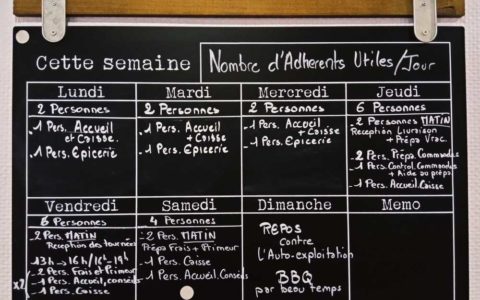 Cette semaine
Nombre d'Adherents Utiles/Jour
Lundi
2 Personnes
- 1 Pers. Accueil
et Caisse.
- 1 Pers. Epicerie
Mardi
2 Personnes
- 1 Pers. Accueil
+ Caisse
- 1 Pers. Epicerie
Mercredi
2 Personnes
- 1 Pers. Accueil
+ Caisse
- 1 Pers. Epicerie
Jeudi
6 Personnes
- 2 Personnes MATIN
Reception Livraison
+ Prépa Vrac.
- 2 Pers. Prépa. Commandes
- 1 Pers. Control. Commandes
+ Aide au prépa
- 1 Pers. Accueil. Caisse
Vendredi
6 Personnes
- 2 Pers. MATIN
Reception des tournées
13h → 16h / 16h - 19h
x2
- 2 Pers. Frais et Primeur
- 1 Pers. Accueil, conseils
- 1 Pers. Caisse
Samedi
4 Personnes
- 2 Pers. MATIN
Prépa Frais + Primeur
- 1 Pers. Caisse
- 1 Pers. Accueil. Conseils
Dimanche
REPOS
contre
l'Auto-exploitation
BBQ
par beau temps
Memo